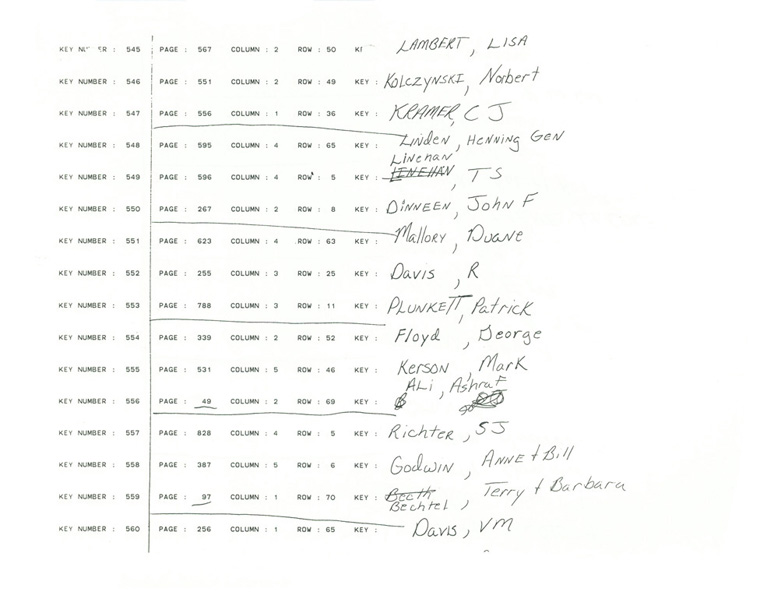 KEY NU ER : 545 PAGE : 567 COLUMN : 2 ROW : 50 KE LAMBERT, LISA
KEY NUMBER : 546 PAGE : 551 COLUMN : 2 ROW : 49 KEY : KOLCZYNSKI, Norbert
KEY NUMBER : 547 PAGE : 556 COLUMN : 1 ROW : 36 KEY : KRAMER, C J
KEY NUMBER : 548 PAGE : 595 COLUMN : 4 ROW : 65 KEY : Linden, Henning Gen
Linehan
KEY NUMBER : 549 PAGE : 596 COLUMN : 4 ROW : 5 KEY : LINEHAN, T S
KEY NUMBER : 550 PAGE : 267 COLUMN : 2 ROW : 8 KEY : DINNEEN, John F
KEY NUMBER : 551 PAGE : 623 COLUMN : 4 ROW : 63 KEY : Mallory, Duane
KEY NUMBER : 552 PAGE : 255 COLUMN : 3 ROW : 25 KEY : Davis, R
KEY NUMBER : 553 PAGE : 788 COLUMN : 3 ROW : 11 KEY : PLUNKETT, Patrick
KEY NUMBER : 554 PAGE : 339 COLUMN : 2 ROW : 52 KEY : Floyd, George
KEY NUMBER : 555 PAGE : 531 COLUMN : 5 ROW : 46 KEY : Kerson, Mark
ALi, Ashraf
KEY NUMBER : 556 PAGE : 49 COLUMN : 2 ROW : 69 KEY :
KEY NUMBER : 557 PAGE : 828 COLUMN : 4 ROW : 5 KEY : Richter, SJ
KEY NUMBER : 558 PAGE : 387 COLUMN : 5 ROW : 6 KEY : Godwin, ANNE + Bill
KEY NUMBER : 559 PAGE : 97 COLUMN : 1 ROW : 70 KEY : Becth, Terry + Barbara
Bechtel
KEY NUMBER : 560 PAGE : 256 COLUMN : 1 ROW : 65 KEY : Davis, VM